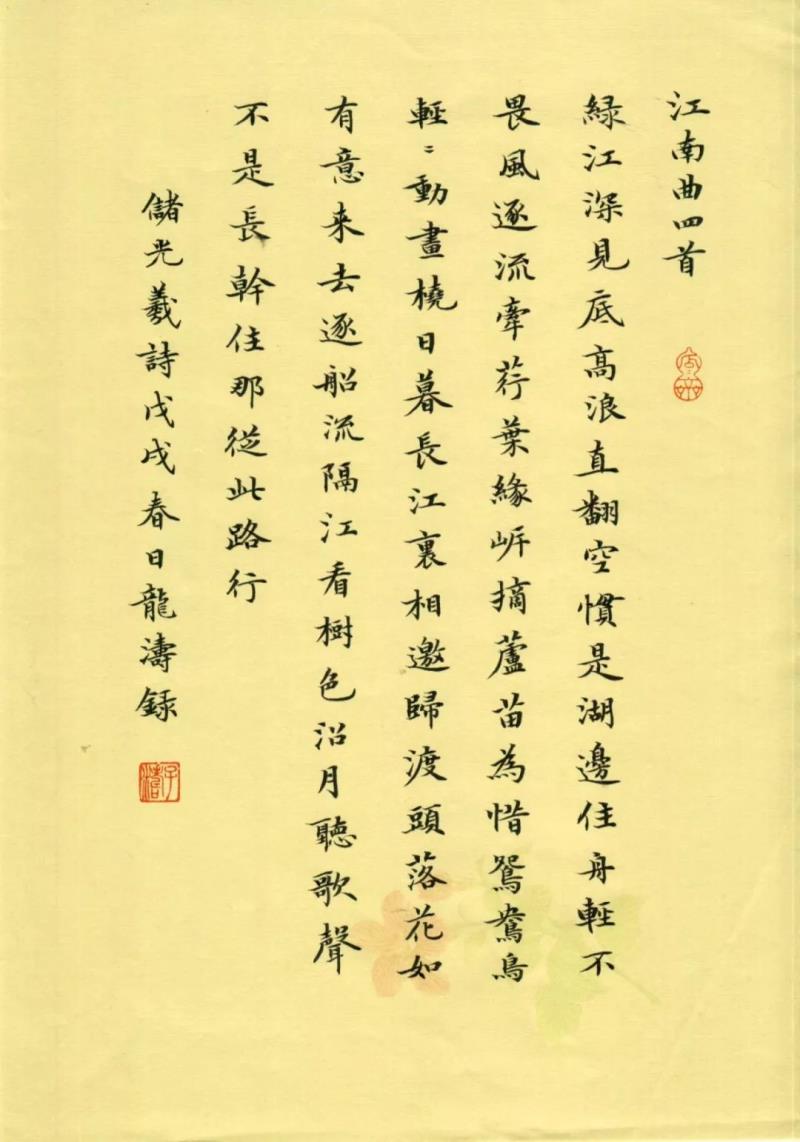 江南曲四首
緑江深見底高浪直翻空慣是湖邊住舟輕不
畏風逐流牽荇葉緣岍摘蘆苗為惜鴛鴦鳥
輕〻動畫橈日暮長江裏相邀歸渡頭落花如
有意來去逐船流隔江看樹色沿月聽歌聲
不是長幹住那從此路行
儲光羲詩戊戌春日龍濤録